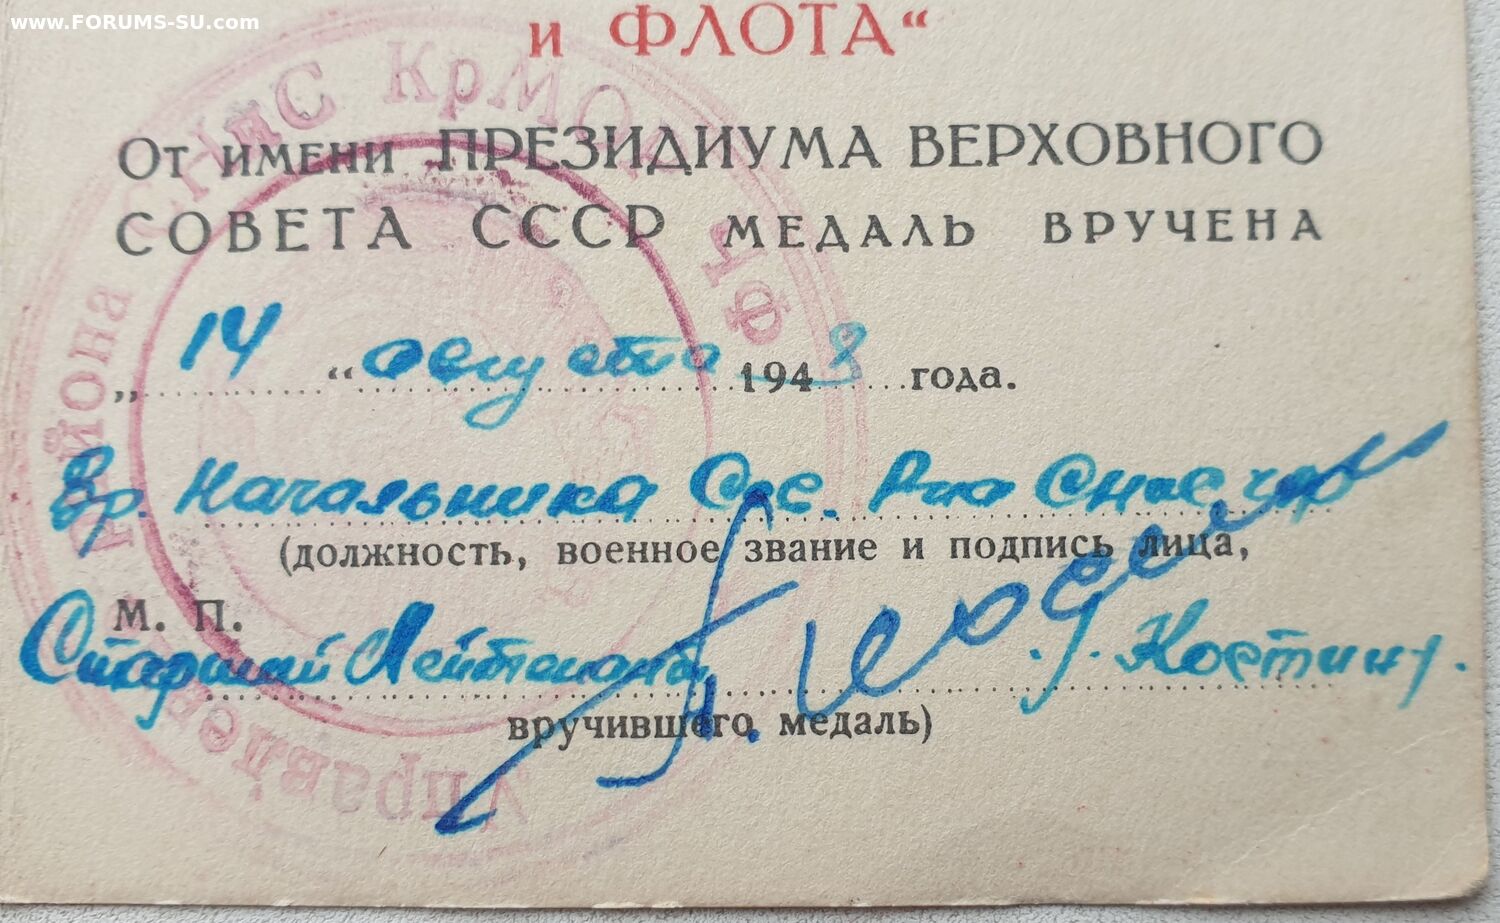 www.FORUMS-SU.com
и ФЛОТА“
От имени ПРЕЗИДИУМА ВЕРХОВНОГО
СОВЕТА СССР МЕДАЛЬ ВРУЧЕНА
„ 14 “ августа 1948 года.
Вр. Начальника
(должность, военное звание и подпись лица,
М. П.
Старший Лейтенант
вручившего медаль)
района СНиС КрМОР ЧФ